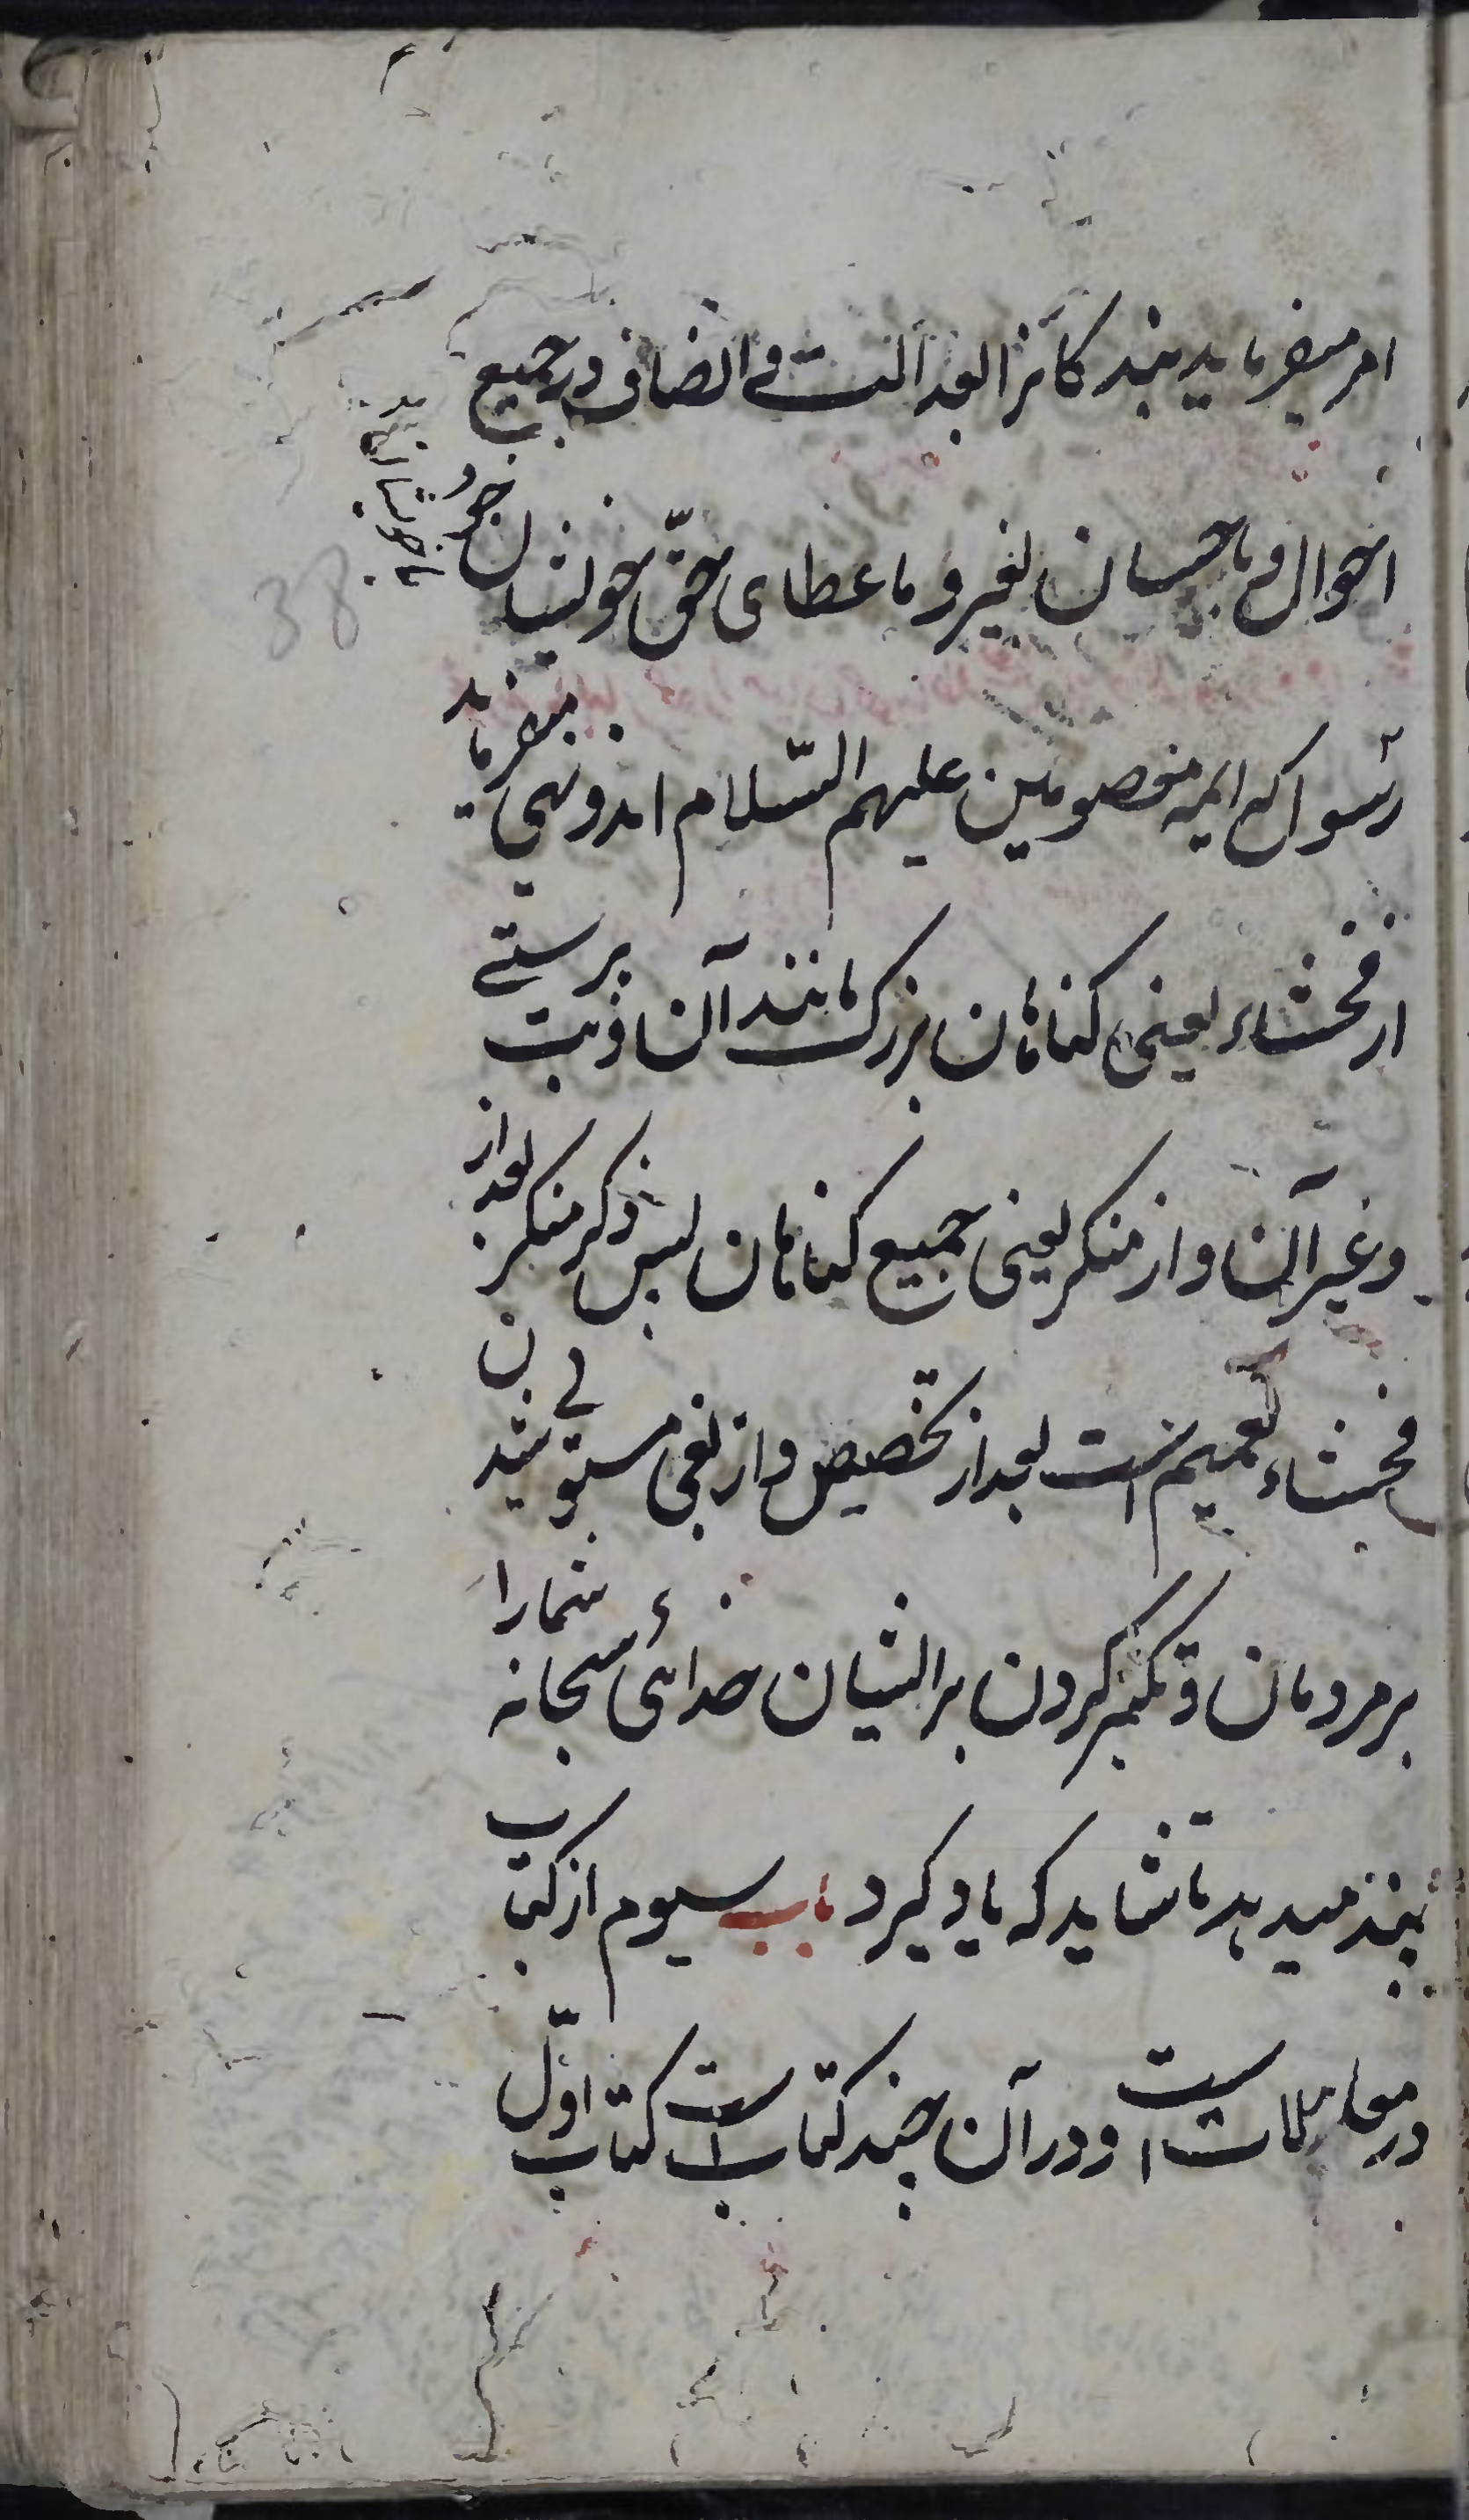 امر میفرماید بندکانرا بعدالت و انصاف در جمیع
احوال و باحسان بغیر و باعطای حق خویشان خود
رسول که ایمه معصومین علیهم السّلام اند و نهی میفرماید
از فحشاء یعنی کناهان بزرک مانند آن و بت پرستے
و غیر آن و از منکر یعنی جمیع کناهان پس ذکر منکر بعد از
فحشاء تعمیم است بعد از تخصیص و از بغی مستولی شدن
بر مردمان و تکبر کردن بر ایشان خدائی سبحانه شمارا
پند میدهد تا شاید که یاد کیرد باب سیوم از کتاب
در معاملات است و در آن چند کتاب است کتاب اوّل
38